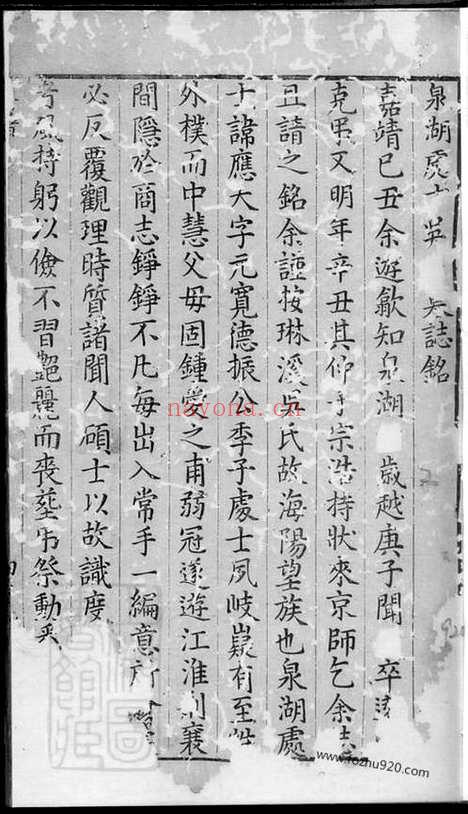 泉湖處士吳 矣誌銘
嘉靖己丑余遊歙知泉湖 歲越庚子聞 卒
克果又明年辛丑其仲子宗浩持狀來京師乞余
且請之銘余謹按琳溪吳氏故海陽望族也泉湖處
士諱應大字元寬德振公季子處士夙岐嶷有至性
外樸而中慧父母固鍾愛之甫弱冠遂遊江淮荆襄
間隱於商志錚錚不凡每出入常手一編意所
必反覆觀理時質諸聞人碩士以故識度
風持躬以儉不習艷麗而喪塟弔祭動
nayona.cn
www.fozhu920.com